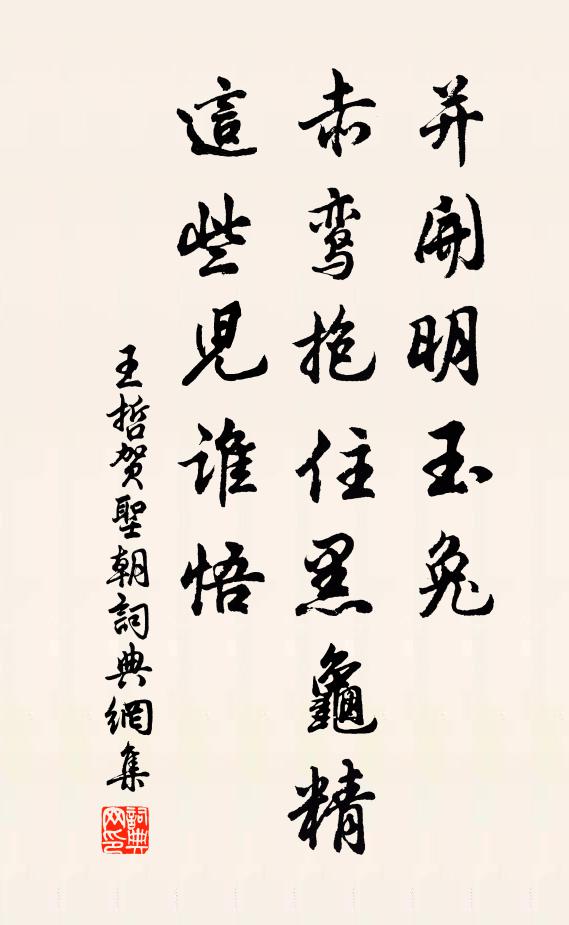 并開明玉兔
赤鸾抱住黑龜精
這些兒谁悟
王哲贺聖朝詞典網集
詞典网印